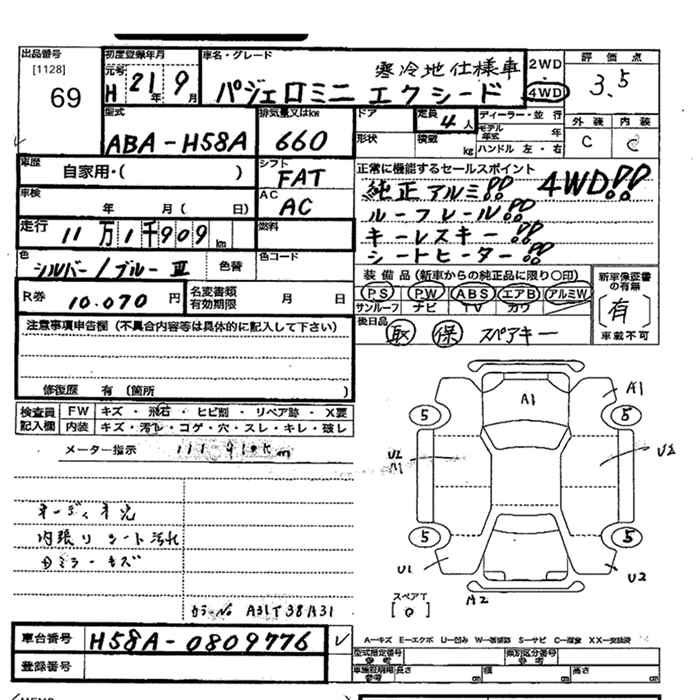 出品番号
[1128]
69
初度登録年月
元号
H 21年 9月
車名・グレード
寒冷地仕様車
パジェロミニ エクシード
2WD
4WD
評価点
3.5
外装 内装
C C
型式
ABA-H58A
排気量又はkw
660
ドア
形状
定員 4人
積載 kg
ディーラー・並行
モデル年式 年
ハンドル 左・右
車歴
自家用・( )
シフト
FAT
車検
年 月( 日)
AC
AC
走行
11万1千909km
燃料
色
シルバー/ブルーⅢ
色替
色コード
R券
10.070円
名変書類有効期限
月 日
正常に機能するセールスポイント
純正アルミ!! 4WD!!
ルーフレール!!
キーレスキー!!
シートヒーター!!
装備品(新車からの純正品に限り〇印)
PS PW ABS エアB アルミW
サンルーフ ナビ TV カワ
新車保証書の有無
[有]
車載不可
後日品
取 保 スペアキー
注意事項申告欄(不具合内容等は具体的に記入して下さい)
修復歴 有〔箇所 〕
検査員記入欄
FW キズ・飛石・ヒビ割・リペア跡・X要
内装 キズ・汚れ・コゲ・穴・スレ・キレ・破レ
メーター指示 111910km
内張り シート汚れ
カラーNo A31T38A31
A1
A1
5
5
U2
U2
5
5
U1
U2
A2
スペアT
[0]
車台番号
H58A-0809776
登録番号
A-キズ E-エクボ U-凹み W-補修跡 S-サビ C-腐食 XX-交換済
型式指定番号 参考
類別区分番号 参考
車検証明欄参考 長さ cm 幅 cm 高さ cm